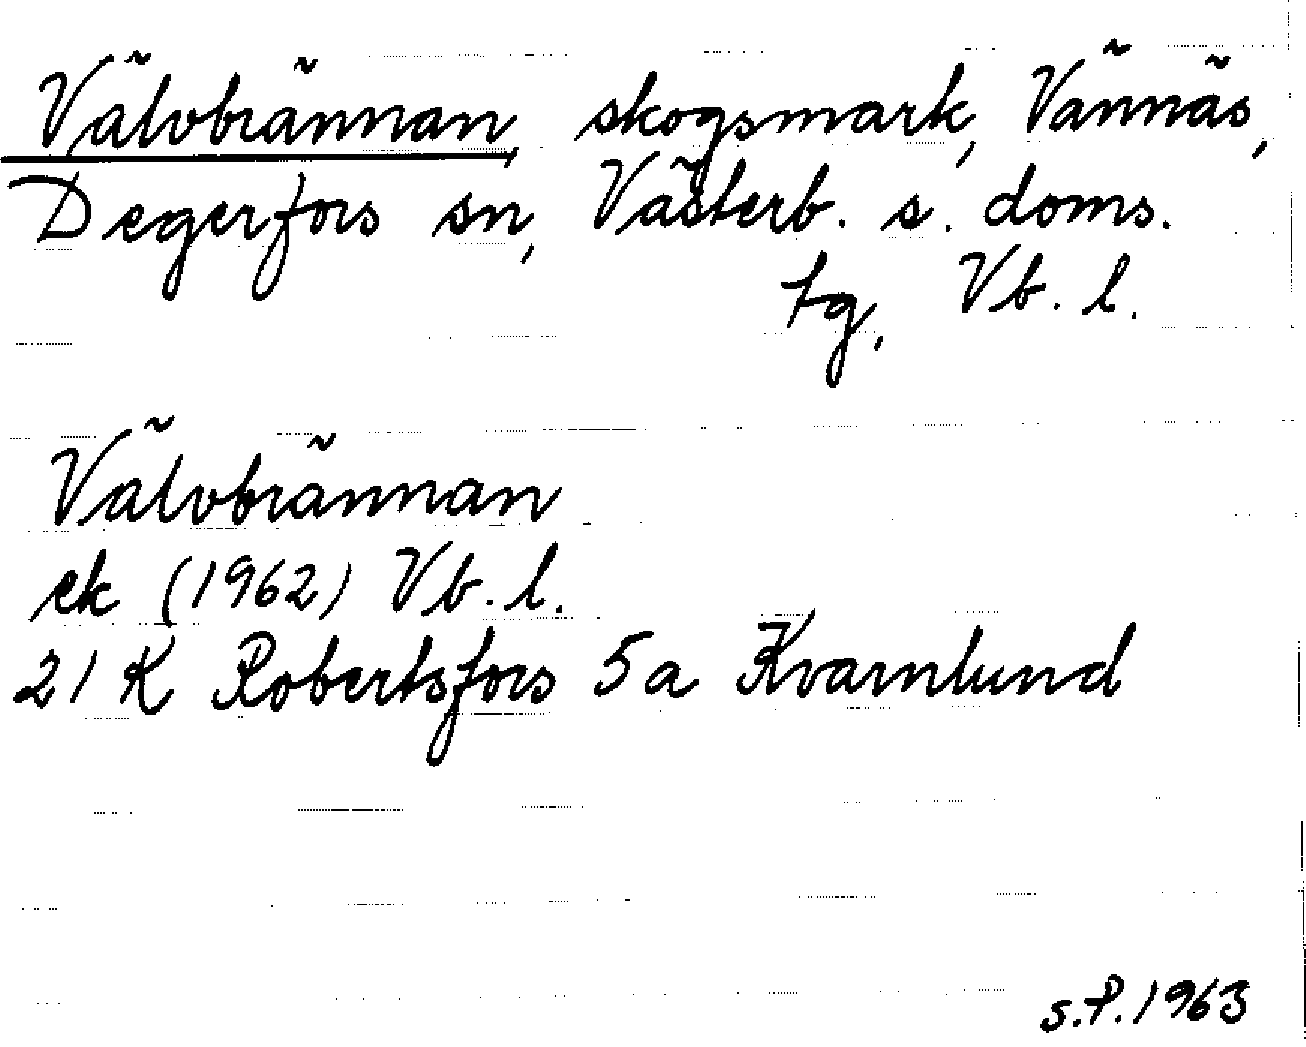 Välvbrännan, skogsmark, Vännäs,
Degerfors sn, Västerb. s. doms.
tg, Vb. l.
Välvbrännan
ek (1962) Vb. l.
21 K Robertsfors 5a Kvarnlund
S.P. 1963